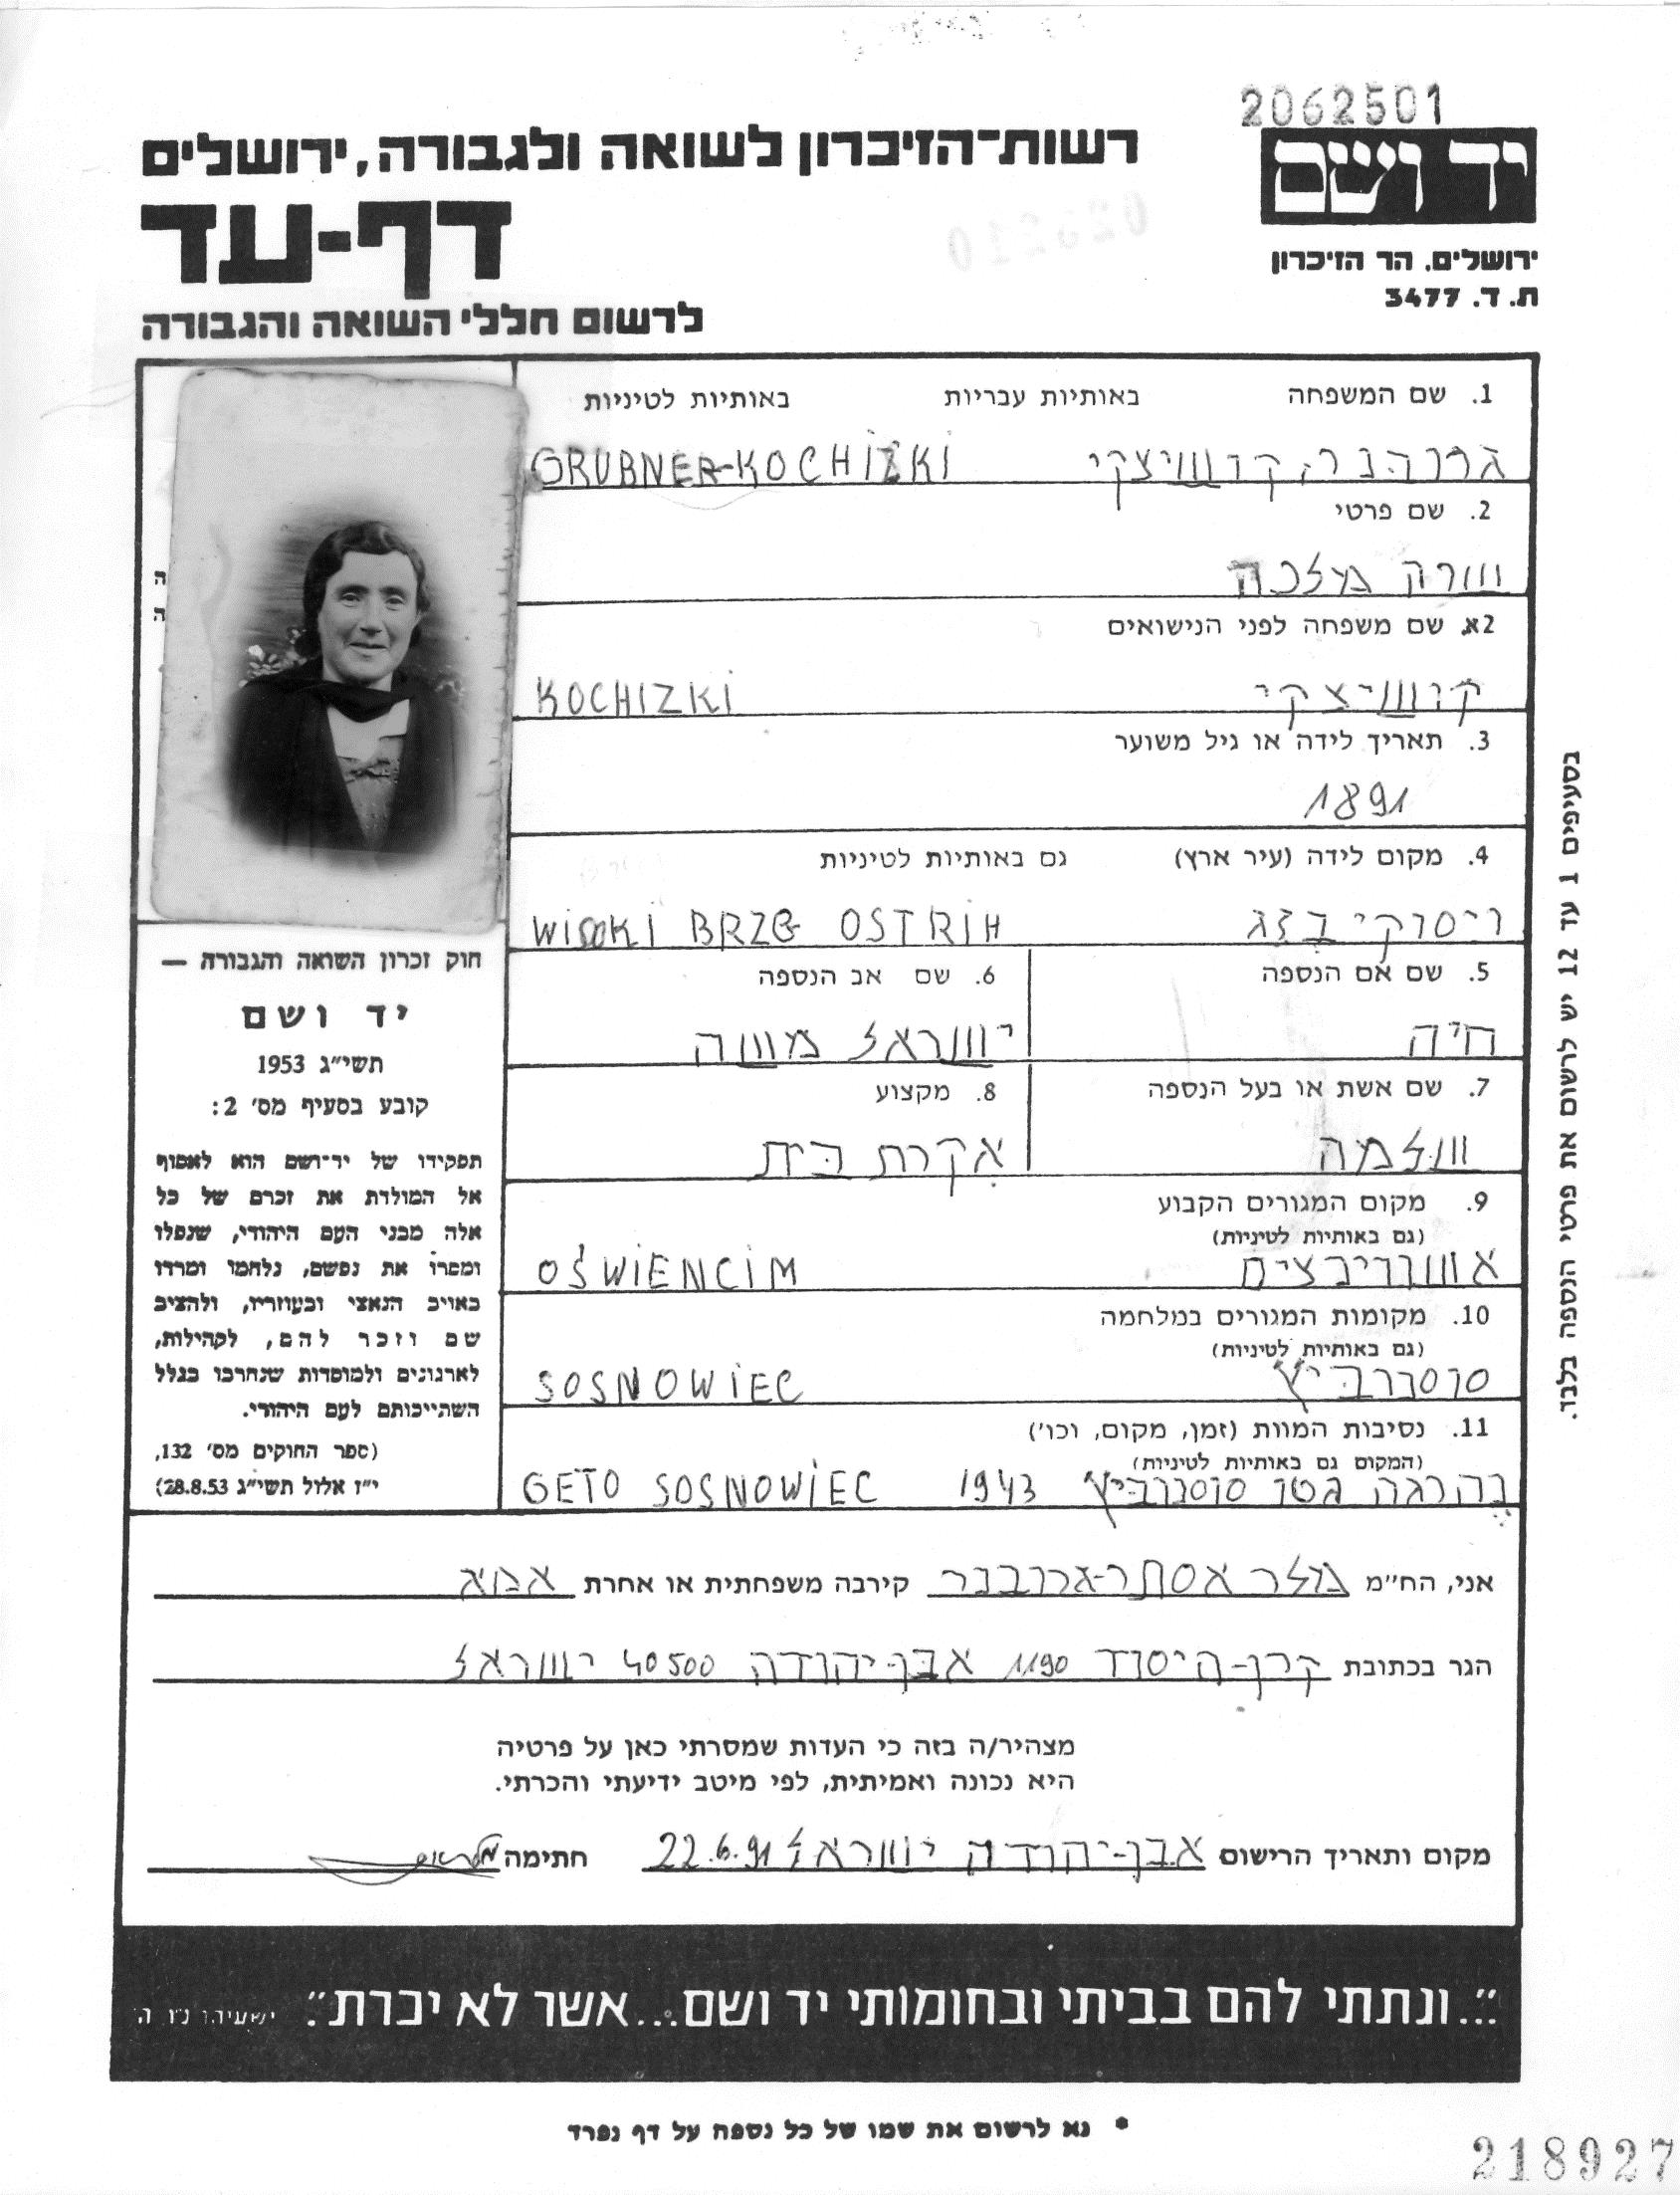 2062501
יד ושם
רשות־הזיכרון לשואה ולגבורה, ירושלים
דף-עד
ירושלים. הר הזיכרון
ת. ד. 3477
לרשום חללי השואה והגבורה
1. שם המשפחה באותיות עבריות באותיות לטיניות
גרובנר, קושיצקי GRUBNER-KOCHIZKI
2. שם פרטי
שרה מלכה
2א. שם משפחה לפני הנישואים
קושיצקי KOCHIZKI
3. תאריך לידה או גיל משוער
1891
4. מקום לידה (עיר ארץ) גם באותיות לטיניות
ויסוקי בזג WISOKI BRZG OSTRIH
5. שם אם הנספה 6. שם אב הנספה
חיה ישראל משה
7. שם אשת או בעל הנספה 8. מקצוע
שלמה אקרת בית
9. מקום המגורים הקבוע
(גם באותיות לטיניות)
אושויינצים OŚWIENCIM
10. מקומות המגורים במלחמה
(גם באותיות לטיניות)
סוסנוביץ SOSNOWIEC
11. נסיבות המוות (זמן, מקום, וכו')
(המקום גם באותיות לטיניות)
בהרגה גטו סוסנוביץ 1943 GETO SOSNOWIEC
ה
ה
חוק זכרון השואה והגבורה —
יד ושם
תשי״ג 1953
קובע בסעיף מס׳ 2:
תפקידו של יד־ושם הוא לאסוף
אל המולדת את זכרם של כל
אלה מבני העם היהודי, שנפלו
ומסרו את נפשם, נלחמו ומרדו
באויב הנאצי ובעוזריו, ולהציב
שם וזכר להם, לקהילות,
לארגונים ולמוסדות שנחרבו בגלל
השתייכותם לעם היהודי.
(ספר החוקים מס׳ 132,
י״ז אלול תשי״ג 28.8.53)
בסעיפים 1 עד 12 יש לרשום את פרטי הנספה בלבד.
אני, הח״מ מלר אסתר-גרובנר קירבה משפחתית או אחרת אמא
הגר בכתובת קרן-היסוד 1190 אבן-יהודה 40500 ישראל
מצהיר/ה בזה כי העדות שמסרתי כאן על פרטיה
היא נכונה ואמיתית, לפי מיטב ידיעתי והכרתי.
מקום ותאריך הרישום אבן-יהודה ישראל 22.6.91 חתימה
״...ונתתי להם בביתי ובחומותי יד ושם...אשר לא יכרת״. ישעיהו נ״ו ה׳
* נא לרשום את שמו של כל נספה על דף נפרד
218927